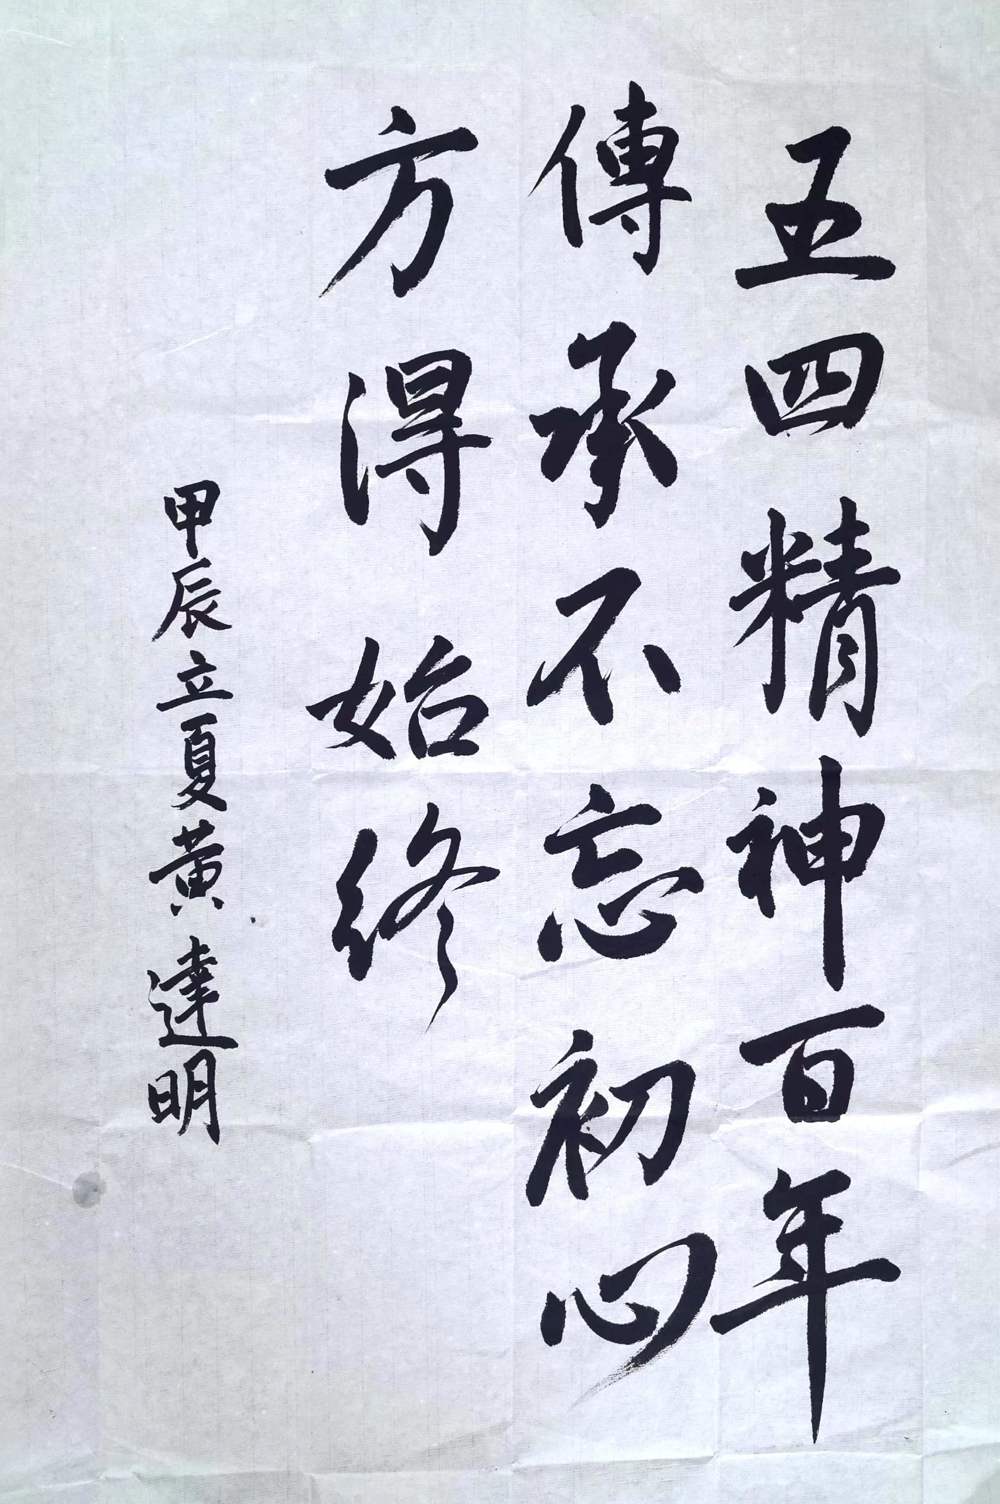 五四精神百年
傳承不忘初心
方得始終
甲辰立夏黄達明